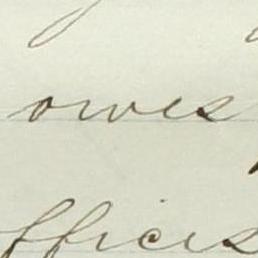 owes
offices